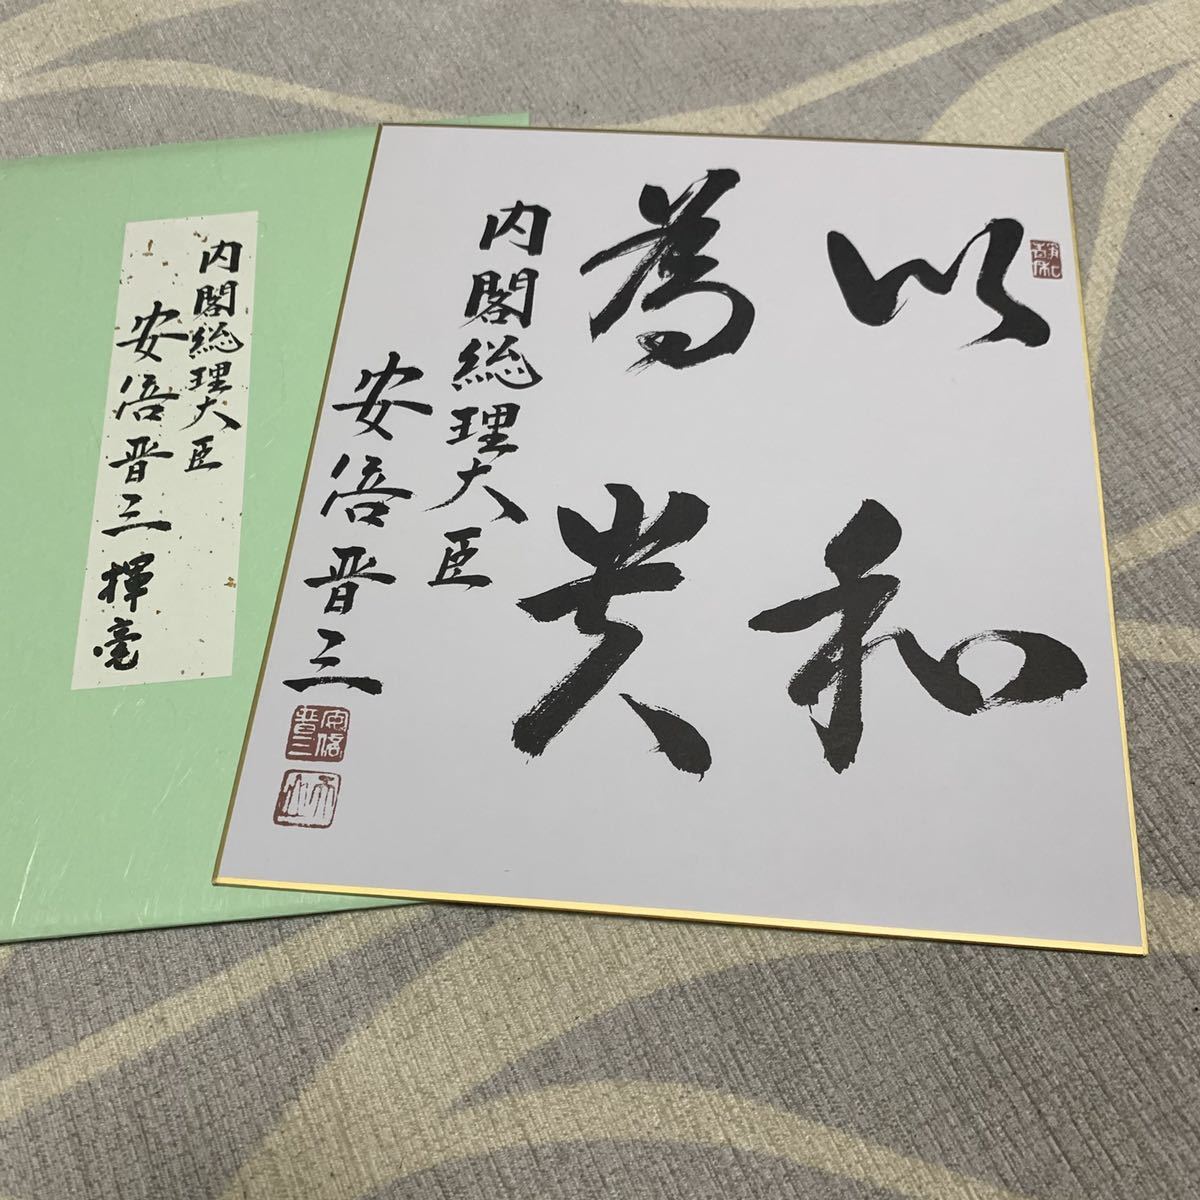 以和
為貴
内閣総理大臣
安倍晋三
安倍
晋三
内閣総理大臣
安倍晋三揮毫